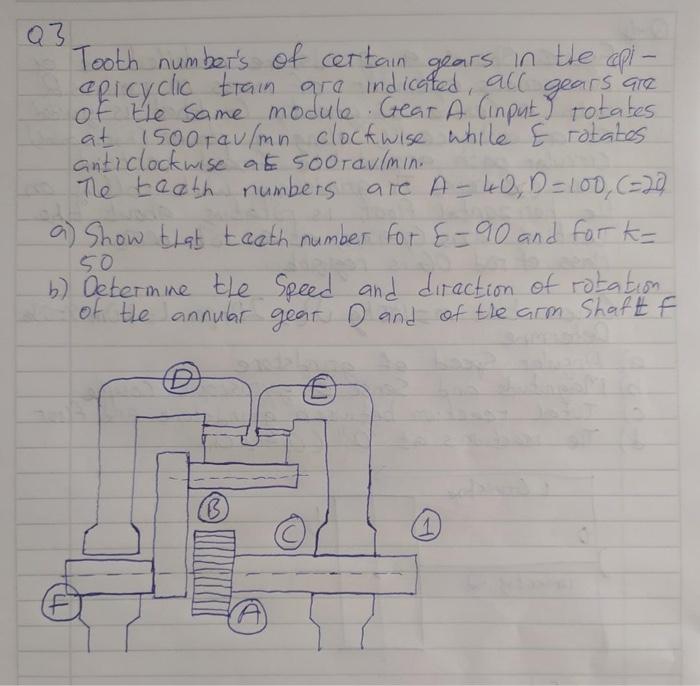 Q3
Tooth number's of certain gears in the epi-
epicyclic train are indicated, all gears are
of the same module. Gear A (input) rotates
at 1500rav/mn clockwise while E rotates
anticlockwise at 500rav/min.
The teeth numbers are A = 40, D = 100, C = 20
a) Show that teeth number for E = 90 and for k =
50
b) Determine the speed and direction of rotation
of the annular gear D and of the arm shaft F
D
E
B
C
1
F
A